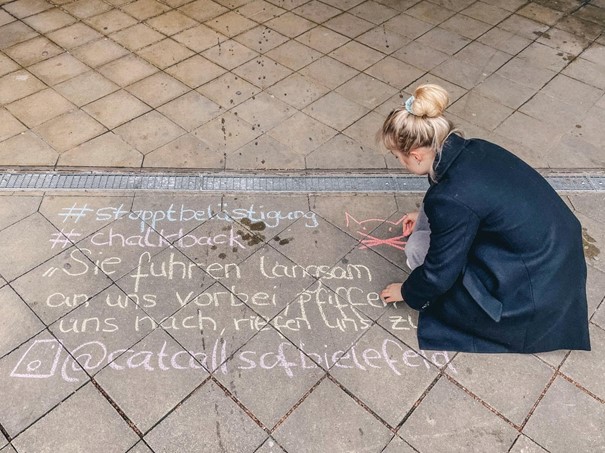 #stopptbelästigung
#chalkback
„Sie fuhren langsam
an uns vorbei, pfiffen
uns nach, riefen uns zu
@catcallsofbielefeld